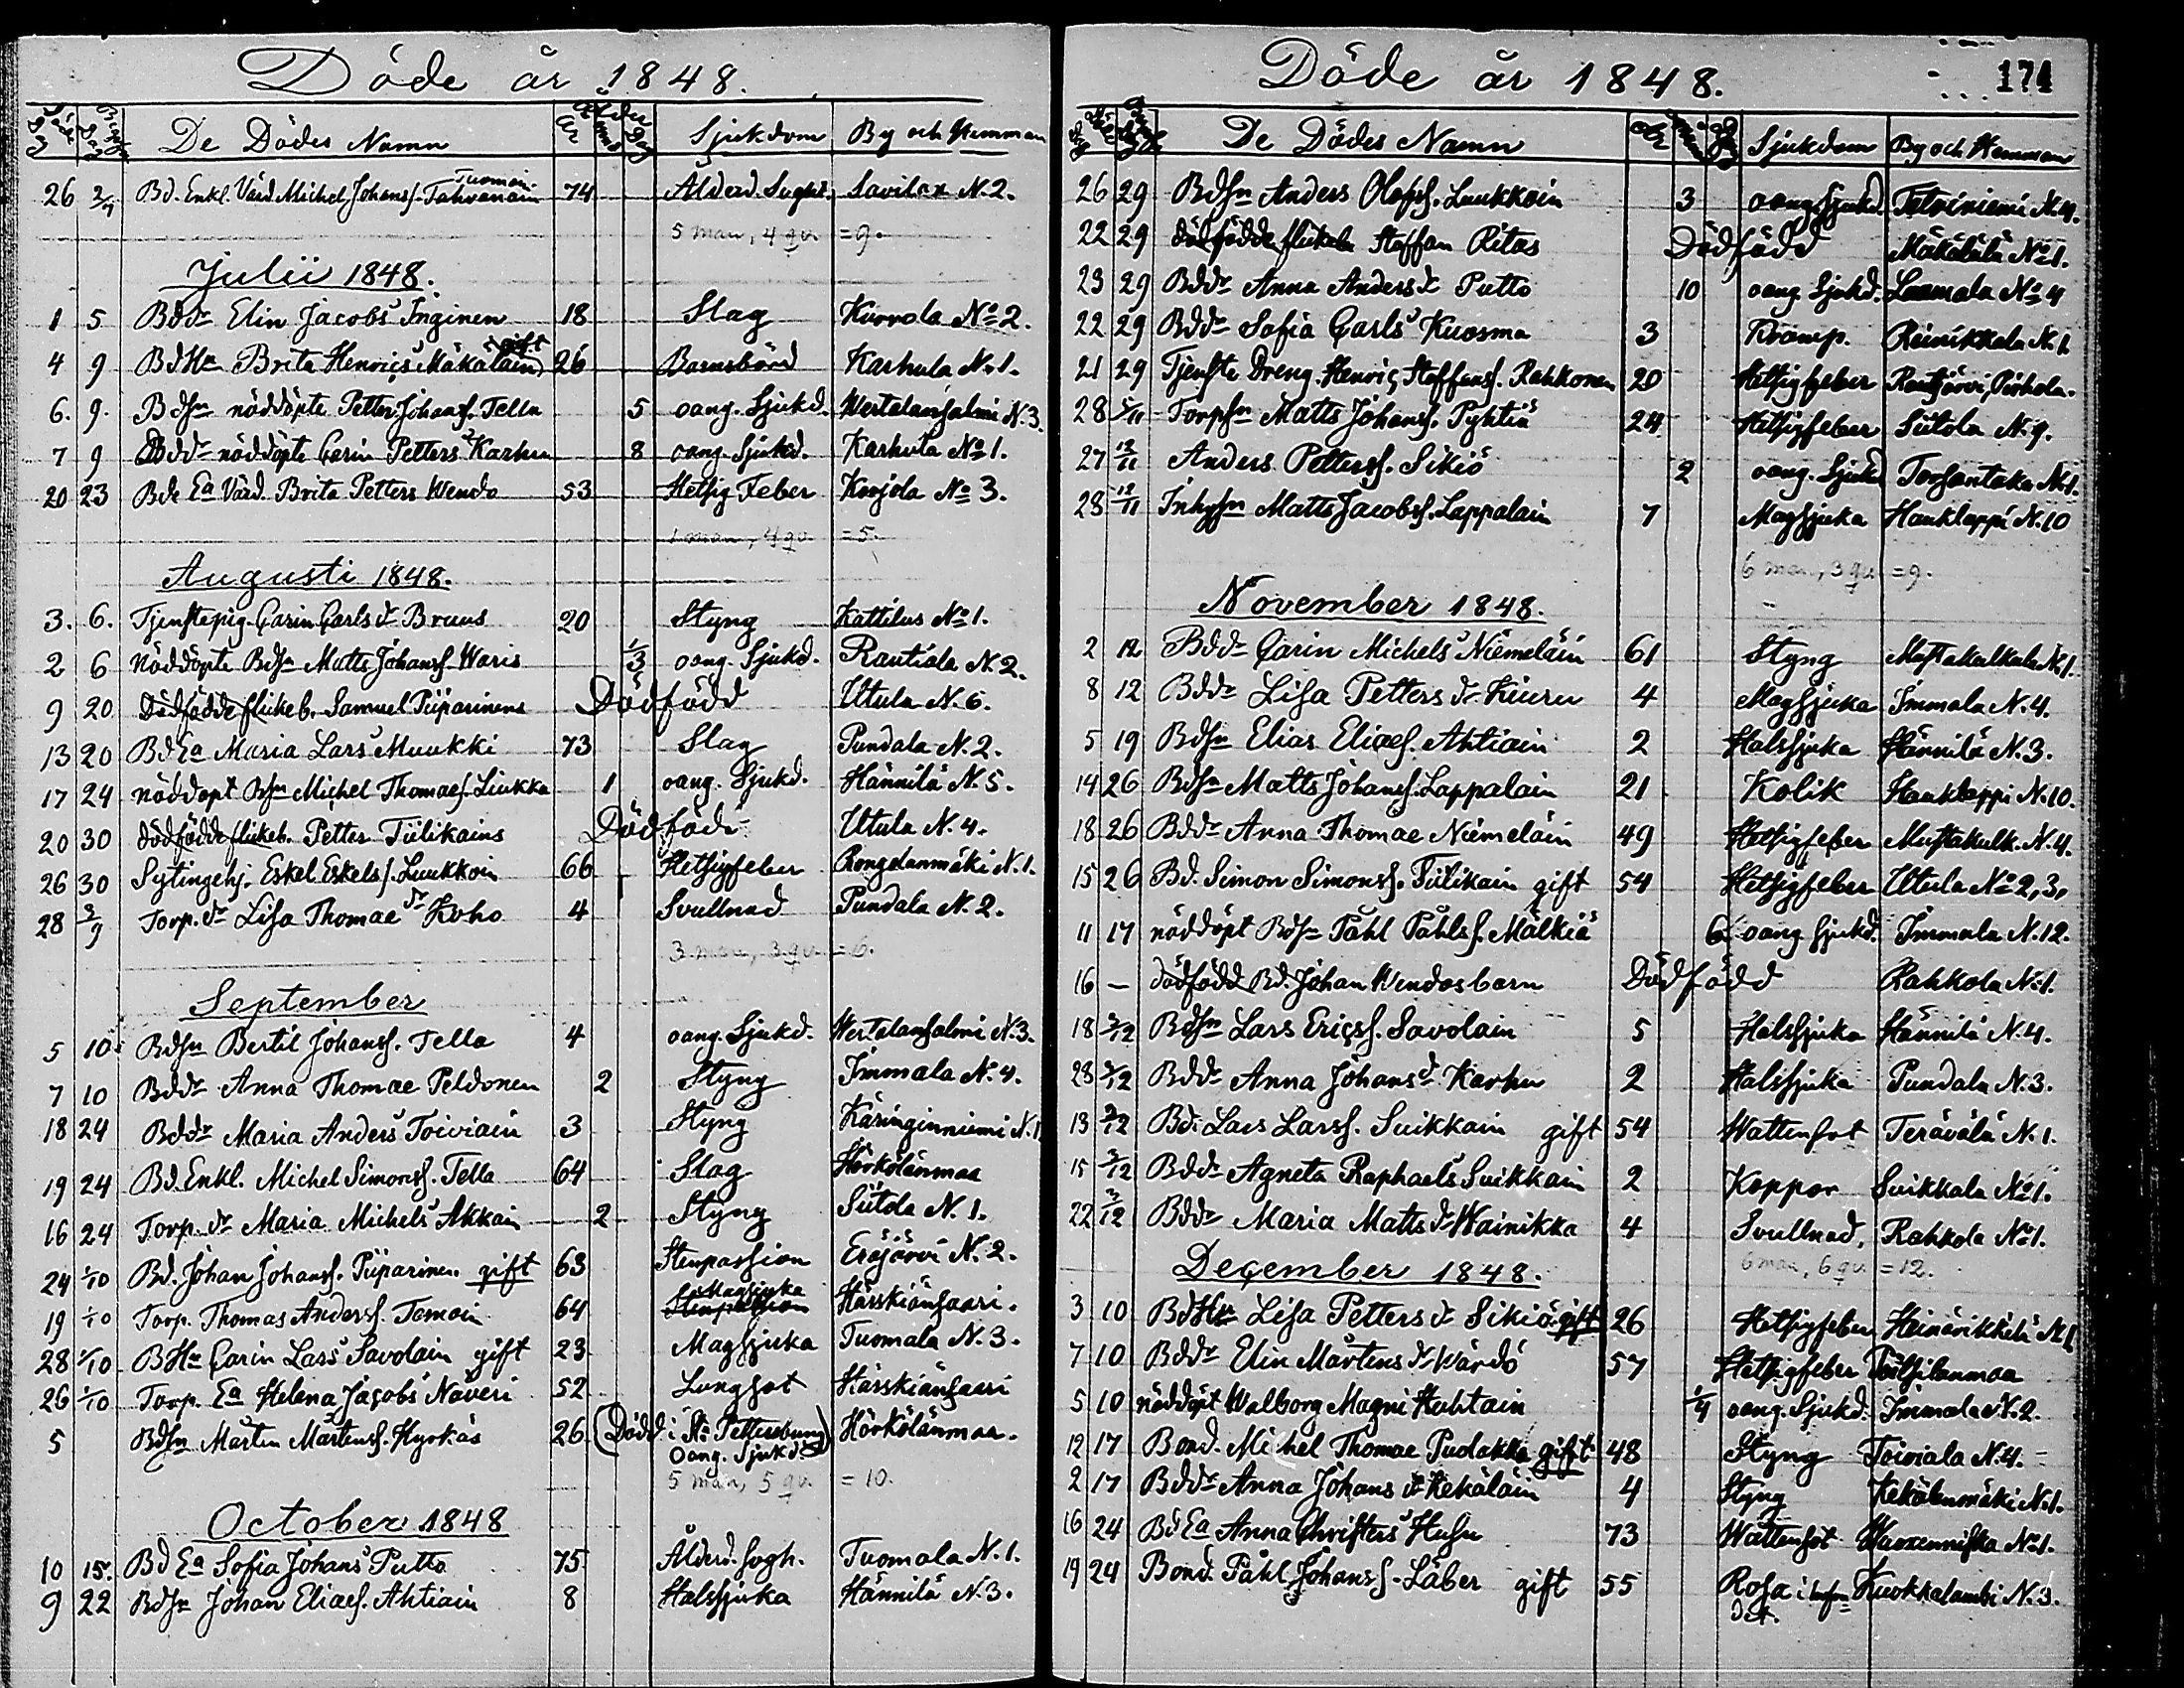 Döde år 1848.
Död Dag Begrafn. Dag De Dödes Namn Ålder År Mån Dag Sjukdom By och Hemman
26 2/7 Bd. Enkl. Värd. Michel Johanss. Tahvanain Tuomain 74 Ålderd. Savilax N. 2.
5 man, 4 qv. = 9.
Julii 1848.
1 5 Bddr Elin Jacobs Inginen 18 Slag Kurvola No 2.
4 9 BdHu Brita Henrics Mäkäläin gift 26 Barnsbörd Karhula N. 1.
6. 9. Bdsn nöddöpte Petter Johanss. Tella 5 oang. Sjukd. Wertalansalmi N. 3.
7 9 Bddr nöddöpte Carin Petters Karhu 8 oang. Sjukd. Karhula No 1.
20 23 Bde Ea Värd. Brita Petters Wendo 53 Hetsig Feber Korjola No 3.
1 man, 4 qv. = 5.
Augusti 1848.
3. 6. Tjenstepig. Carin Carls dr Bruus 20 Styng Kattilus No 1.
2 6 nöddöpte Bdsn Matts Johanss. Waris 1/3 oang. Sjukd. Rautiala N. 2.
9 20 Dödfödde flickeb. Samuel Piiparinens Dödfödd Utula N. 6.
13 20 Bd Ea Maria Lars Muukki 73 Slag Pundala N. 2.
17 24 nöddöpt Bdsn Michel Thomaes. Liukka 1 oang. Sjukd. Hännilä N. 5.
20 30 dödfödde flickeb. Petter Tiilikains Dödfödd Utula N. 4.
26 30 Sytingehj. Eskel Eskels. Luukkoin 66 Hetsigfeber Rongelanmäki N. 1.
28 3/9 Torp. dr Lisa Thomae dr Koho 4 Svullnad Pundala N. 2.
3 man, 3 qv. = 6.
September
5 10 Bdsn Bertil Johanss. Tella 4 oang. Sjukd. Wertalansalmi N. 3.
7 10 Bddr Anna Thomae Peldonen 2 Styng Immala N. 4.
18 24 Bddr Maria Anders Toiviain 3 Styng Käringinniemi N. 1
19 24 Bd. Enkl. Michel Simonss. Tella 64 Slag Hörkölänmaa
16 24 Torp. dr Maria Michels Akkain 2 Styng Siitola N. 1.
24 1/10 Bd. Johan Johanss. Piiparinen gift 63 Stenpassion Eräjärvi N. 2.
19 1/10 Torp. Thomas Anderss. Tomoin 64 Stenpassion Magsjuka Härskiänsaari.
28 1/10 BHu Carin Lars Savolain gift 23 Magsjuka Tuomala N. 3.
26 1/10 Torp. Ea Helena Jacobs Näveri 52 Lungsot Härskiänsaari
5 Bdsn Mårten Mårtenss. Hyrkäs 26 (Död i St. Pettersburg) Oang. Sjukd. Hörkölänmaa.
5 man, 5 qv. = 10.
October 1848
10 15. Bd Ea Sofia Johans Putto 75 Ålderd. Tuomala N. 1.
9 22 Bdsn Johan Eliaes. Ahtiain 8 Halssjuka Hännilä N. 3.
Döde år 1848. 174
De Dödes Namn Sjukdom By och Hemman
26 29 Bdsn Anders Olofss. Luukkoin 3 oang. Sjukd. Tetriniemi N. 4.
22 29 dödfödde flickeb. Staffan Ritas Dödfödd Mäkälälä No 1.
23 29 Bddr Anna Anders dr Putto 10 oang. Sjukd. Laamala No 4
22 29 Bddr Sofia Carls Kuosma 3 Kramp. Reinikkala N. 1.
21 29 Tjenste Dreng Henric Staffanss. Rahkonen 20 Hetsigfeber Rautjärvi, Pirhola.
28 5/11 Torpsn Matts Johanss. Pyhtiä 24 Hetsigfeber Siitola N. 9.
27 12/11 Anders Petterss. Sikiö 2 oang. Sjukd. Torsantaka N. 1.
28 12/11 Inhysn Matts Jacobss. Lappalain 7 Magsjuka Hauklappi N. 10
6 man, 3 qv. = 9.
November 1848.
2 12 Bddr Carin Michels Niemeläin 61 Styng Mustakulkula N. 1.
8 12 Bddr Lisa Petters dr Kiuru 4 Magsjuka Immala N. 4.
5 19 Bdsn Elias Eliaes. Ahtiain 2 Halssjuka Hännilä N. 3.
14 26 Bdsn Matts Johanss. Lappalain 21 Kolik Hauklappi N. 10.
18 26 Bddr Anna Thomae Niemeläin 49 Hetsigfeber Mustakulk. N. 4.
15 26 Bd. Simon Simonss. Tiilikain gift 54 Hetsigfeber Utula No 2, 3.
11 17 nöddöpt Bdsn Påhl Påhls. Mälkiä 6 oang sjukd. Immala N. 12.
16 — dödfödd Bd. Johan Wendos barn Dödfödd Rahkola N. 1.
18 3/12 Bdsn Lars Ericss. Savolain 5 Halssjuka Hännilä N. 4.
28 3/12 Bddr Anna Johans dr Karhu 2 Halssjuka Pundala N. 3.
13 3/12 Bd. Lars Larss. Suikkain gift 54 Wattensot Terävälä N. 1.
15 3/12 Bddr Agneta Raphaels Suikkain 2 Koppor Suikkala No 1.
22 3/12 Bddr Maria Matts dr Wainikka 4 Svullnad, Rahkola No 1.
6 man, 6 qv. = 12.
December 1848.
3 10 BdHu Lisa Petters dr Sikiö gift 26 Hetsigfeber Heinärikkilä N. 1
7 10 Bddr Elin Mårtens dr Wärdö 57 Hetsigfeber
5 10 nöddöpt Walborg Magni Huhtain 1/4 oang. Sjukd. Immala N. 2.
12 17 Bond. Michel Thomae Pudakka gift 48 Styng Toiviala N. 4.
2 17 Bddr Anna Johans dr Kekäläin 4 Styng Kekälenmäki N. 1.
16 24 Bd Ea Anna Christers Husu 73 Wattensot Wuoxenniska No 1.
19 24 Bond. Påhl Johanss. Läber gift 55 Rosa i Kuokkalambi N. 3.